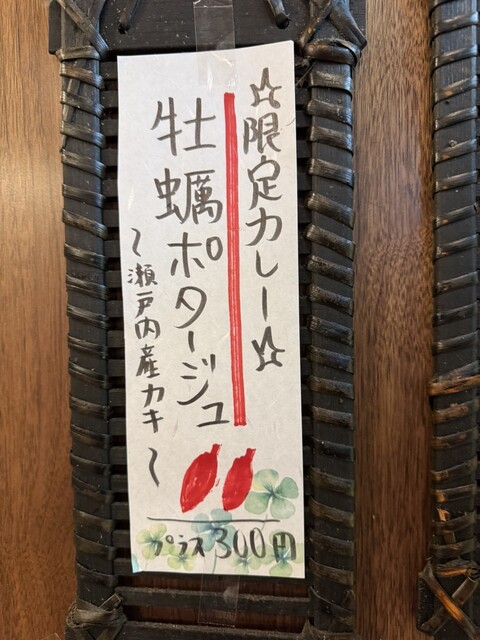 ☆限定カレー☆
牡蠣ポタージュ
~瀬戸内産カキ~
プラス300円